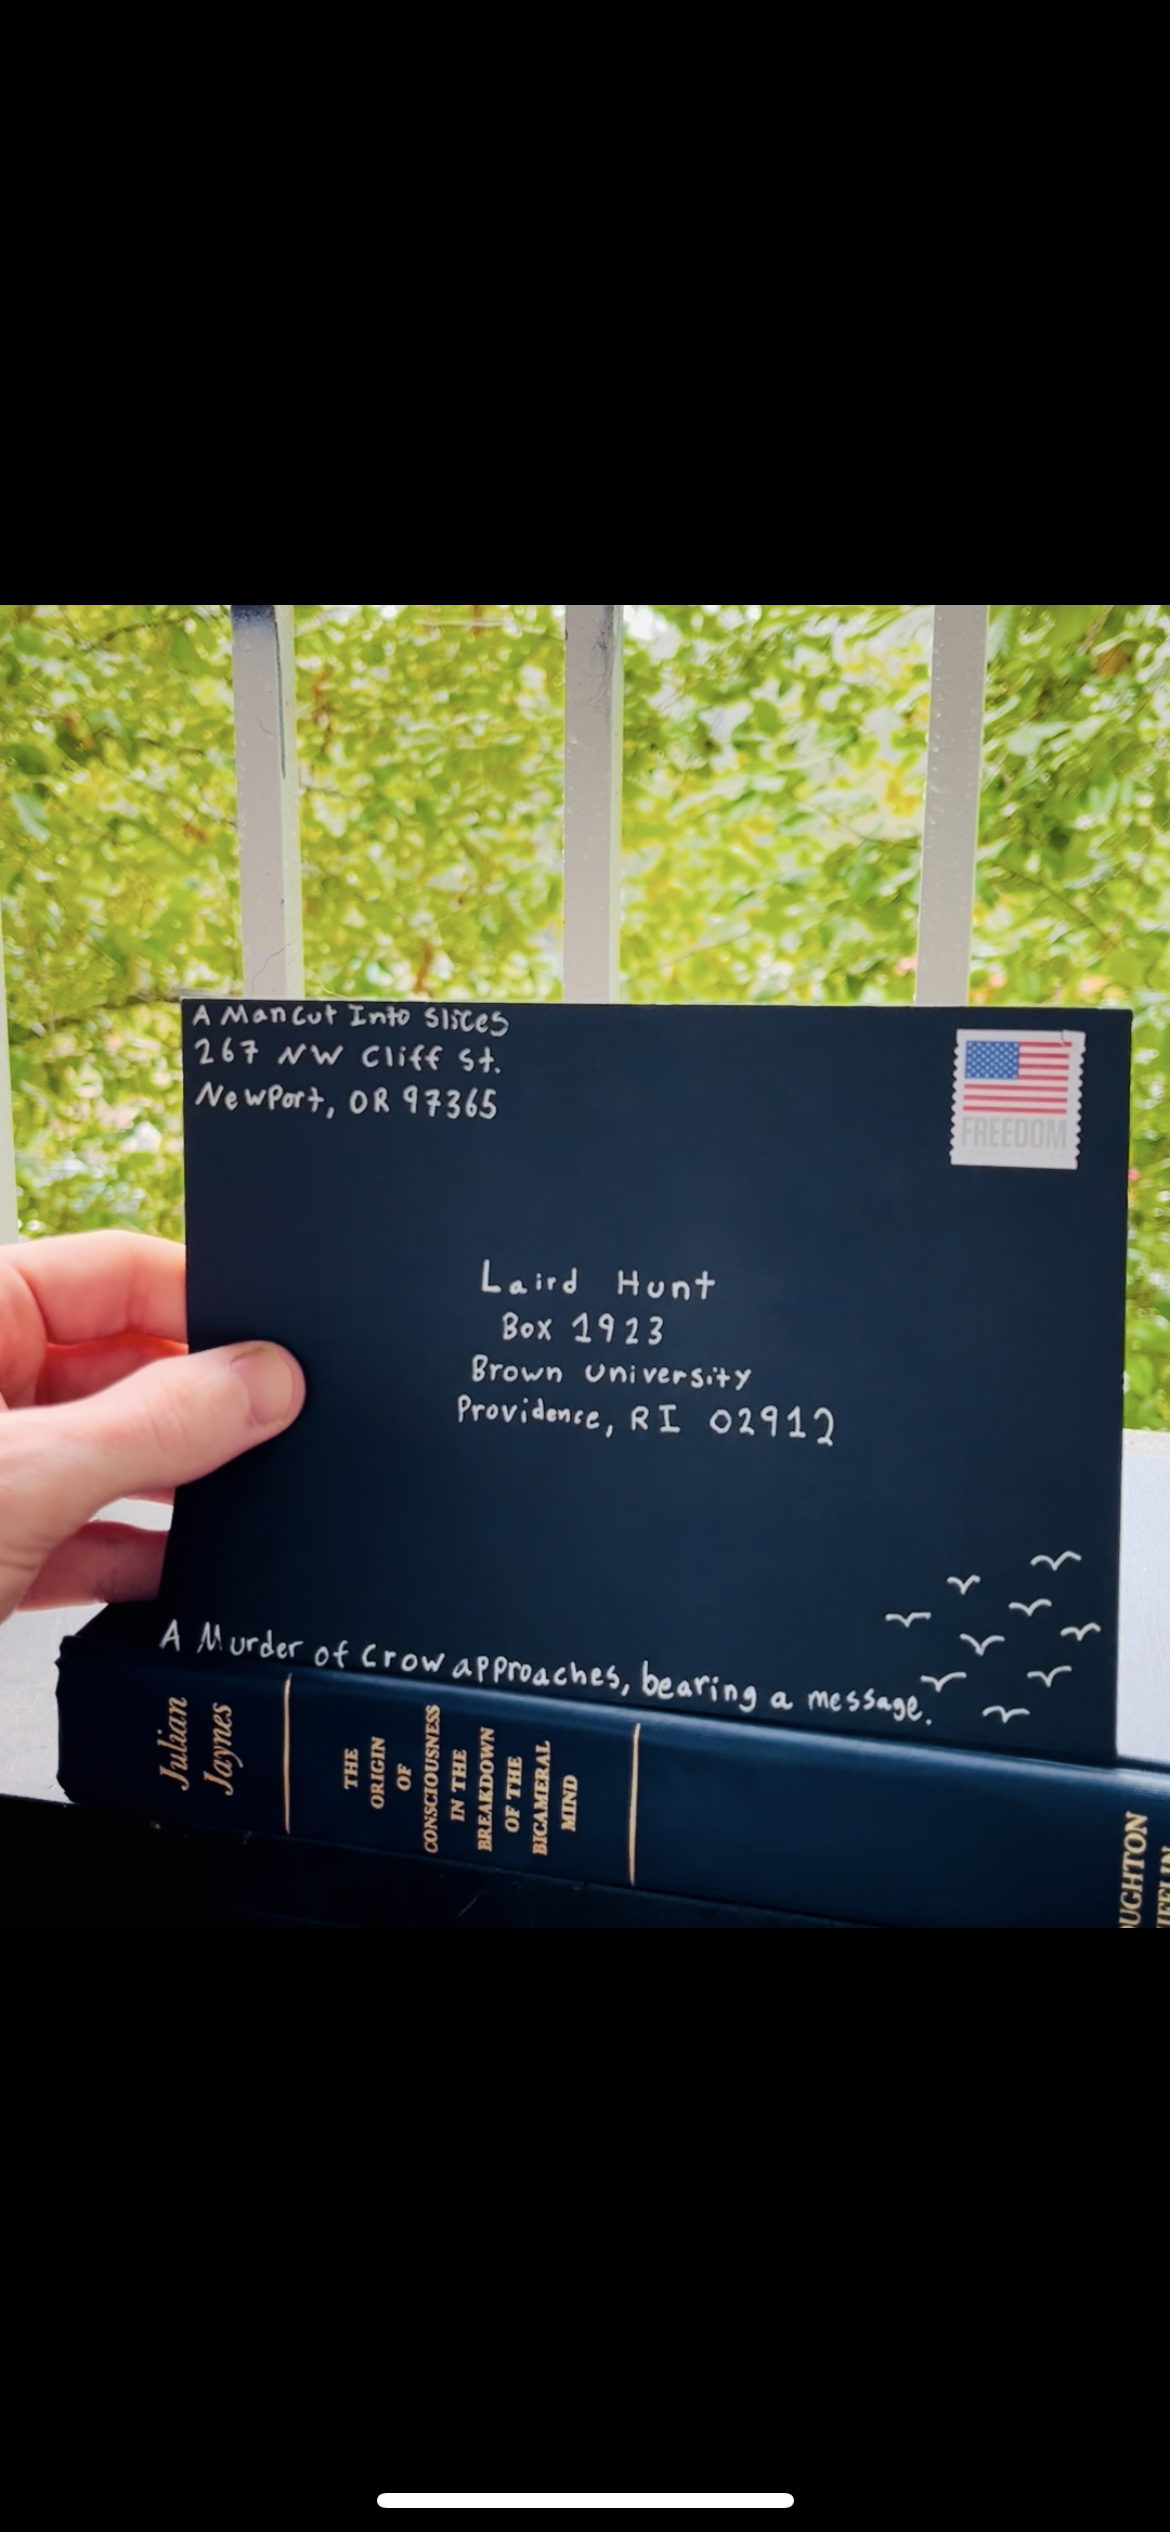 A Man Cut Into Slices
267 NW Cliff St.
Newport, OR 97365
FREEDOM
Laird Hunt
Box 1923
Brown University
Providence, RI 02912
A Murder of Crow approaches, bearing a message.
Julian
Jaynes
THE
ORIGIN
OF
CONSCIOUSNESS
IN THE
BREAKDOWN
OF THE
BICAMERAL
MIND
OUGHTON